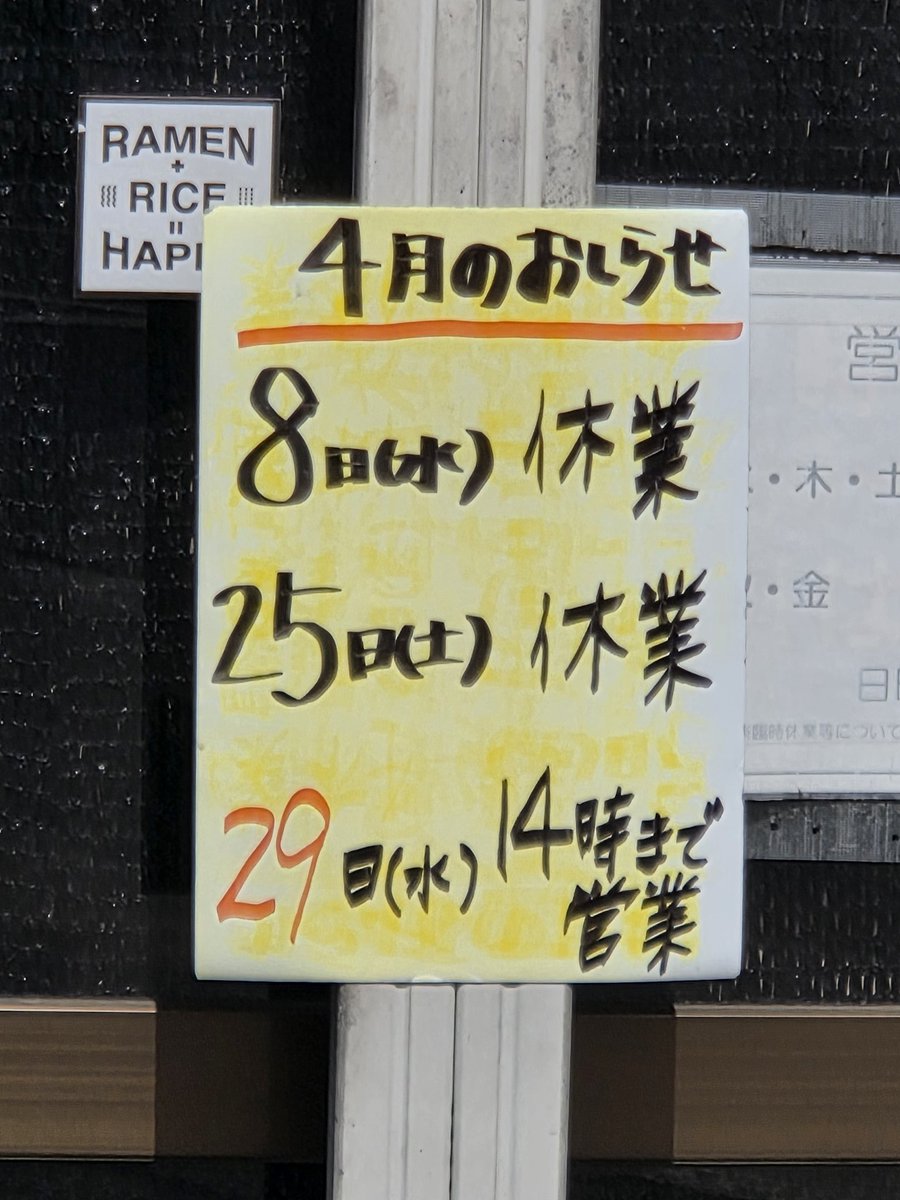 RAMEN
+
RICE
=
4月のおしらせ
8日(水) 休業
25日(土) 休業
29日(水) 14時まで
営業
営
・木・土
・金
臨時休業等について